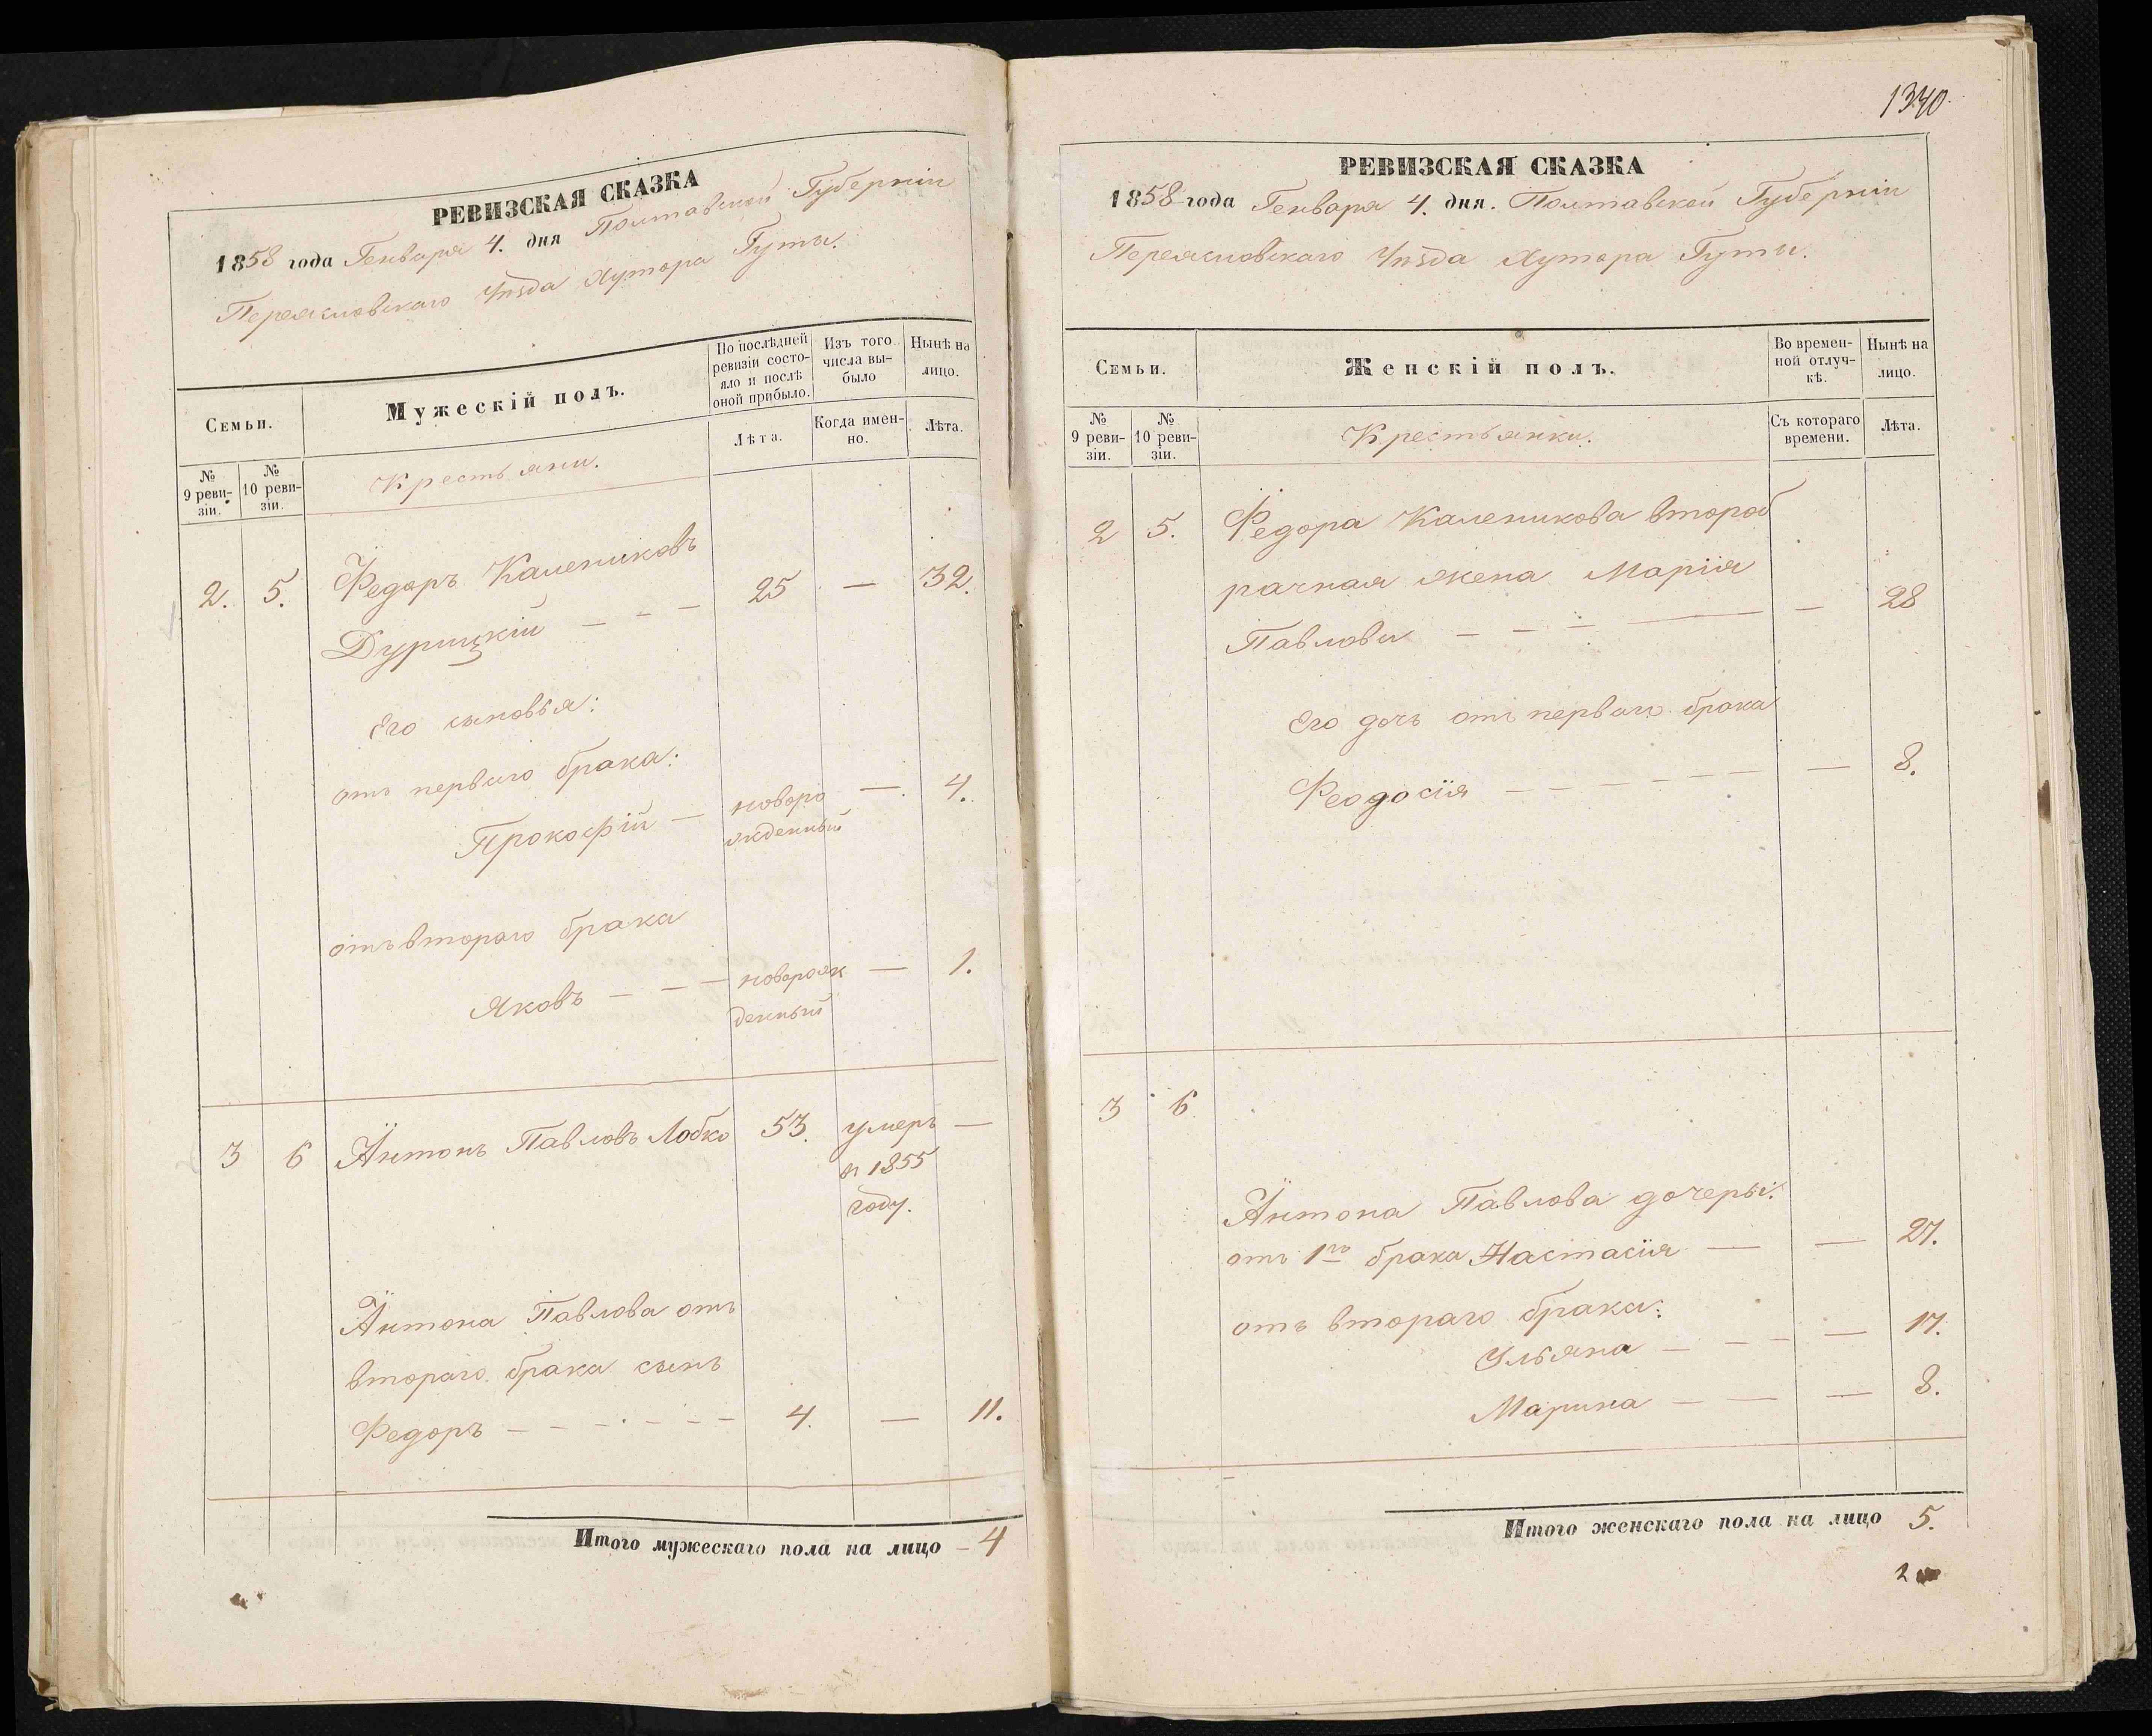 РЕВИЗСКАЯ СКАЗКА
1858 года Генваря 4. дня Полтавской Губерніи
Переясловскаго Уѣзда Хутора Гуты.
Семьи.
Мужескій полъ.
По послѣдней ревизіи состо-
яло и послѣ оной прибыло.
Изъ того числа вы-
было
Нынѣ на лицо.
№ 9 реви-
зіи.
№ 10 реви-
зіи.
Крестьяни.
Лѣта.
Когда имен-
но.
Лѣта.
2. 5. Федоръ Калениковъ
Дурицкій - - - 25 — 32.
Его сыновья:
отъ перваго брака:
Прокофій — новоро — 4.
жденный
отъ втораго брака
Яковъ - - - новорож — 1.
денный
3 6 Антонъ Павловъ Лобко 53. умеръ —
въ 1855
году.
Антона Павлова отъ
втораго брака сынъ
Федоръ - - - - - - 4. — 11.
Итого мужескаго пола на лицо - 4
1340.
РЕВИЗСКАЯ СКАЗКА
1858 года Генваря 4. дня. Полтавской Губерніи
Переясловскаго Уѣзда Хутора Гуты.
Семьи.
Женскій полъ.
Во времен-
ной отлуч-
кѣ.
Нынѣ на лицо.
№ 9 реви-
зіи.
№ 10 реви-
зіи.
Крестьянки.
Съ котораго времени.
Лѣта.
2 5. Федора Каленикова второб
рачная жена Марія
Павлова - - - — — 28
Его дочь отъ перваго брака
Феодосія - - - - - - — 8.
3 6
Антона Павлова дочеры:
отъ 1го брака Настасія — — 27.
отъ втораго брака:
Ульяна - - - — 17.
Марина - — — 8.
Итого женскаго пола на лицо 5.